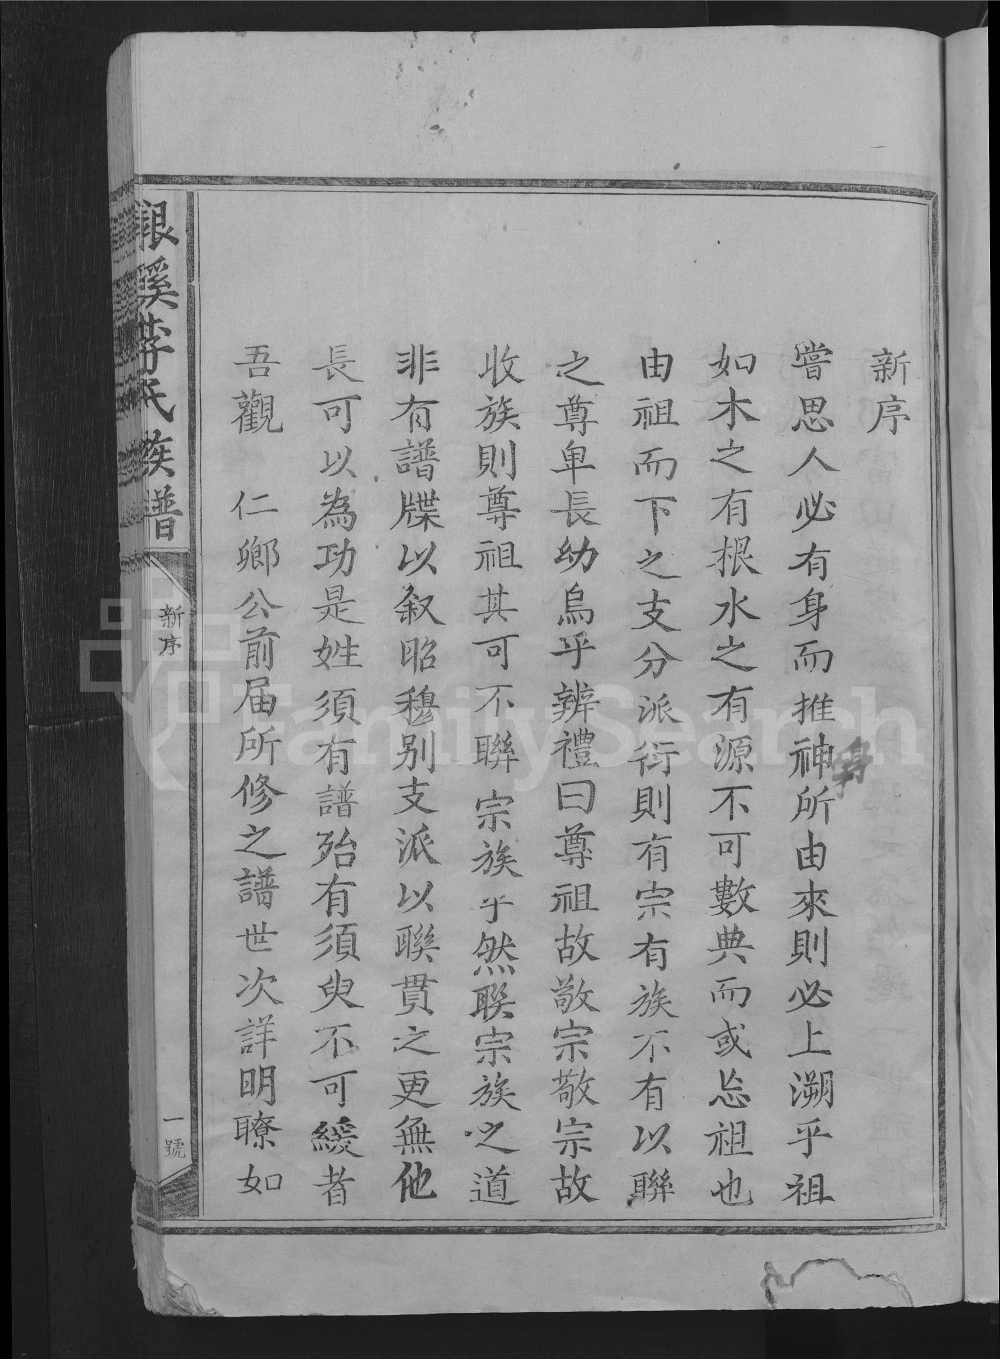 新序
嘗思人必有身而推神所由來則必上溯乎祖
身
如木之有根水之有源不可數典而或忘祖也
由祖而下之支分派衍則有宗有族不有以聯
之尊卑長幼烏乎辨禮曰尊祖故敬宗敬宗故
收族則尊祖其可不聯宗族乎然聯宗族之道
非有譜牒以叙昭穆別支派以聯貫之更無他
長可以為功是姓須有譜殆有須臾不可緩者
吾觀 仁鄉公前届所修之譜世次詳明瞭如
銀溪李氏族譜
新序
一號
FamilySearch